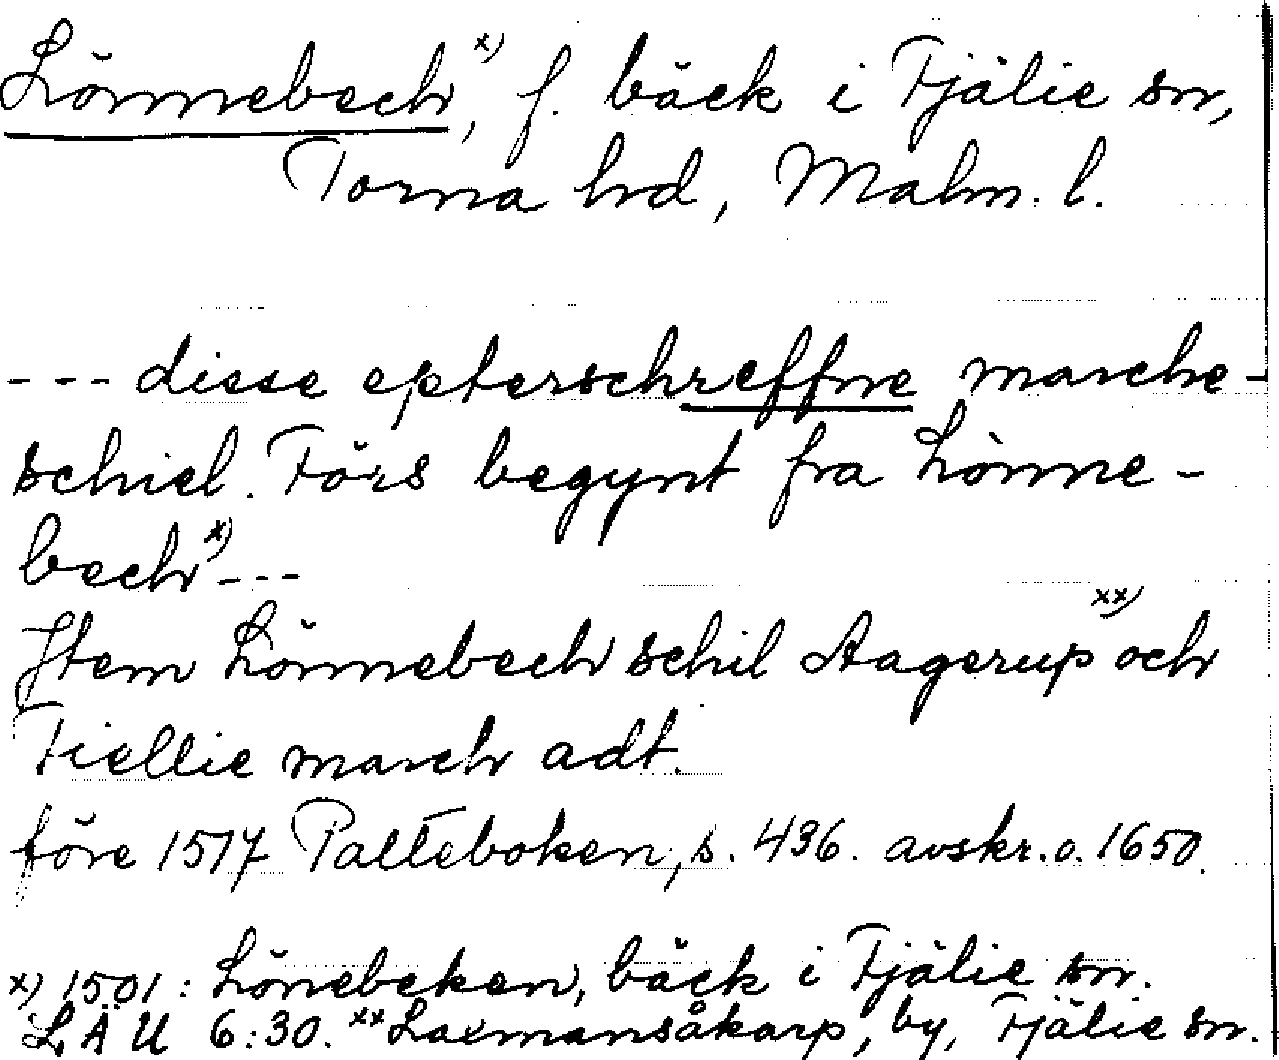 Lönnebech,ˣ⁾ f. bäck i Fjälie sn,
Torna hd, Malm. l.
--- diesse epterschreffne marche-
schiel. Förs begynt fra Lònne-
bechˣ⁾---
Item Lönnebech schil Aagerupˣˣ⁾ och
Fiellie march adt.
före 1517 Palteboken, s. 436. avskr. o. 1650.
x) 1501: Lönebeken, bäck i Fjälie sn.
LÄU 6:30. ˣˣLaxmansåkarp, by, Fjälie sn.